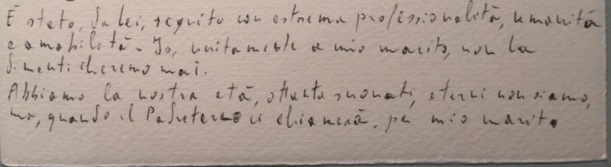 È stato, da lei, seguito con estrema professionalità, umanità
e amabilità. Io, unitamente a mio marito, non la
dimenticheremo mai.
Abbiamo la nostra età, ottanta suonati, eterni non siamo,
ma, quando il Padreterno ci chiamerà, per mio marito